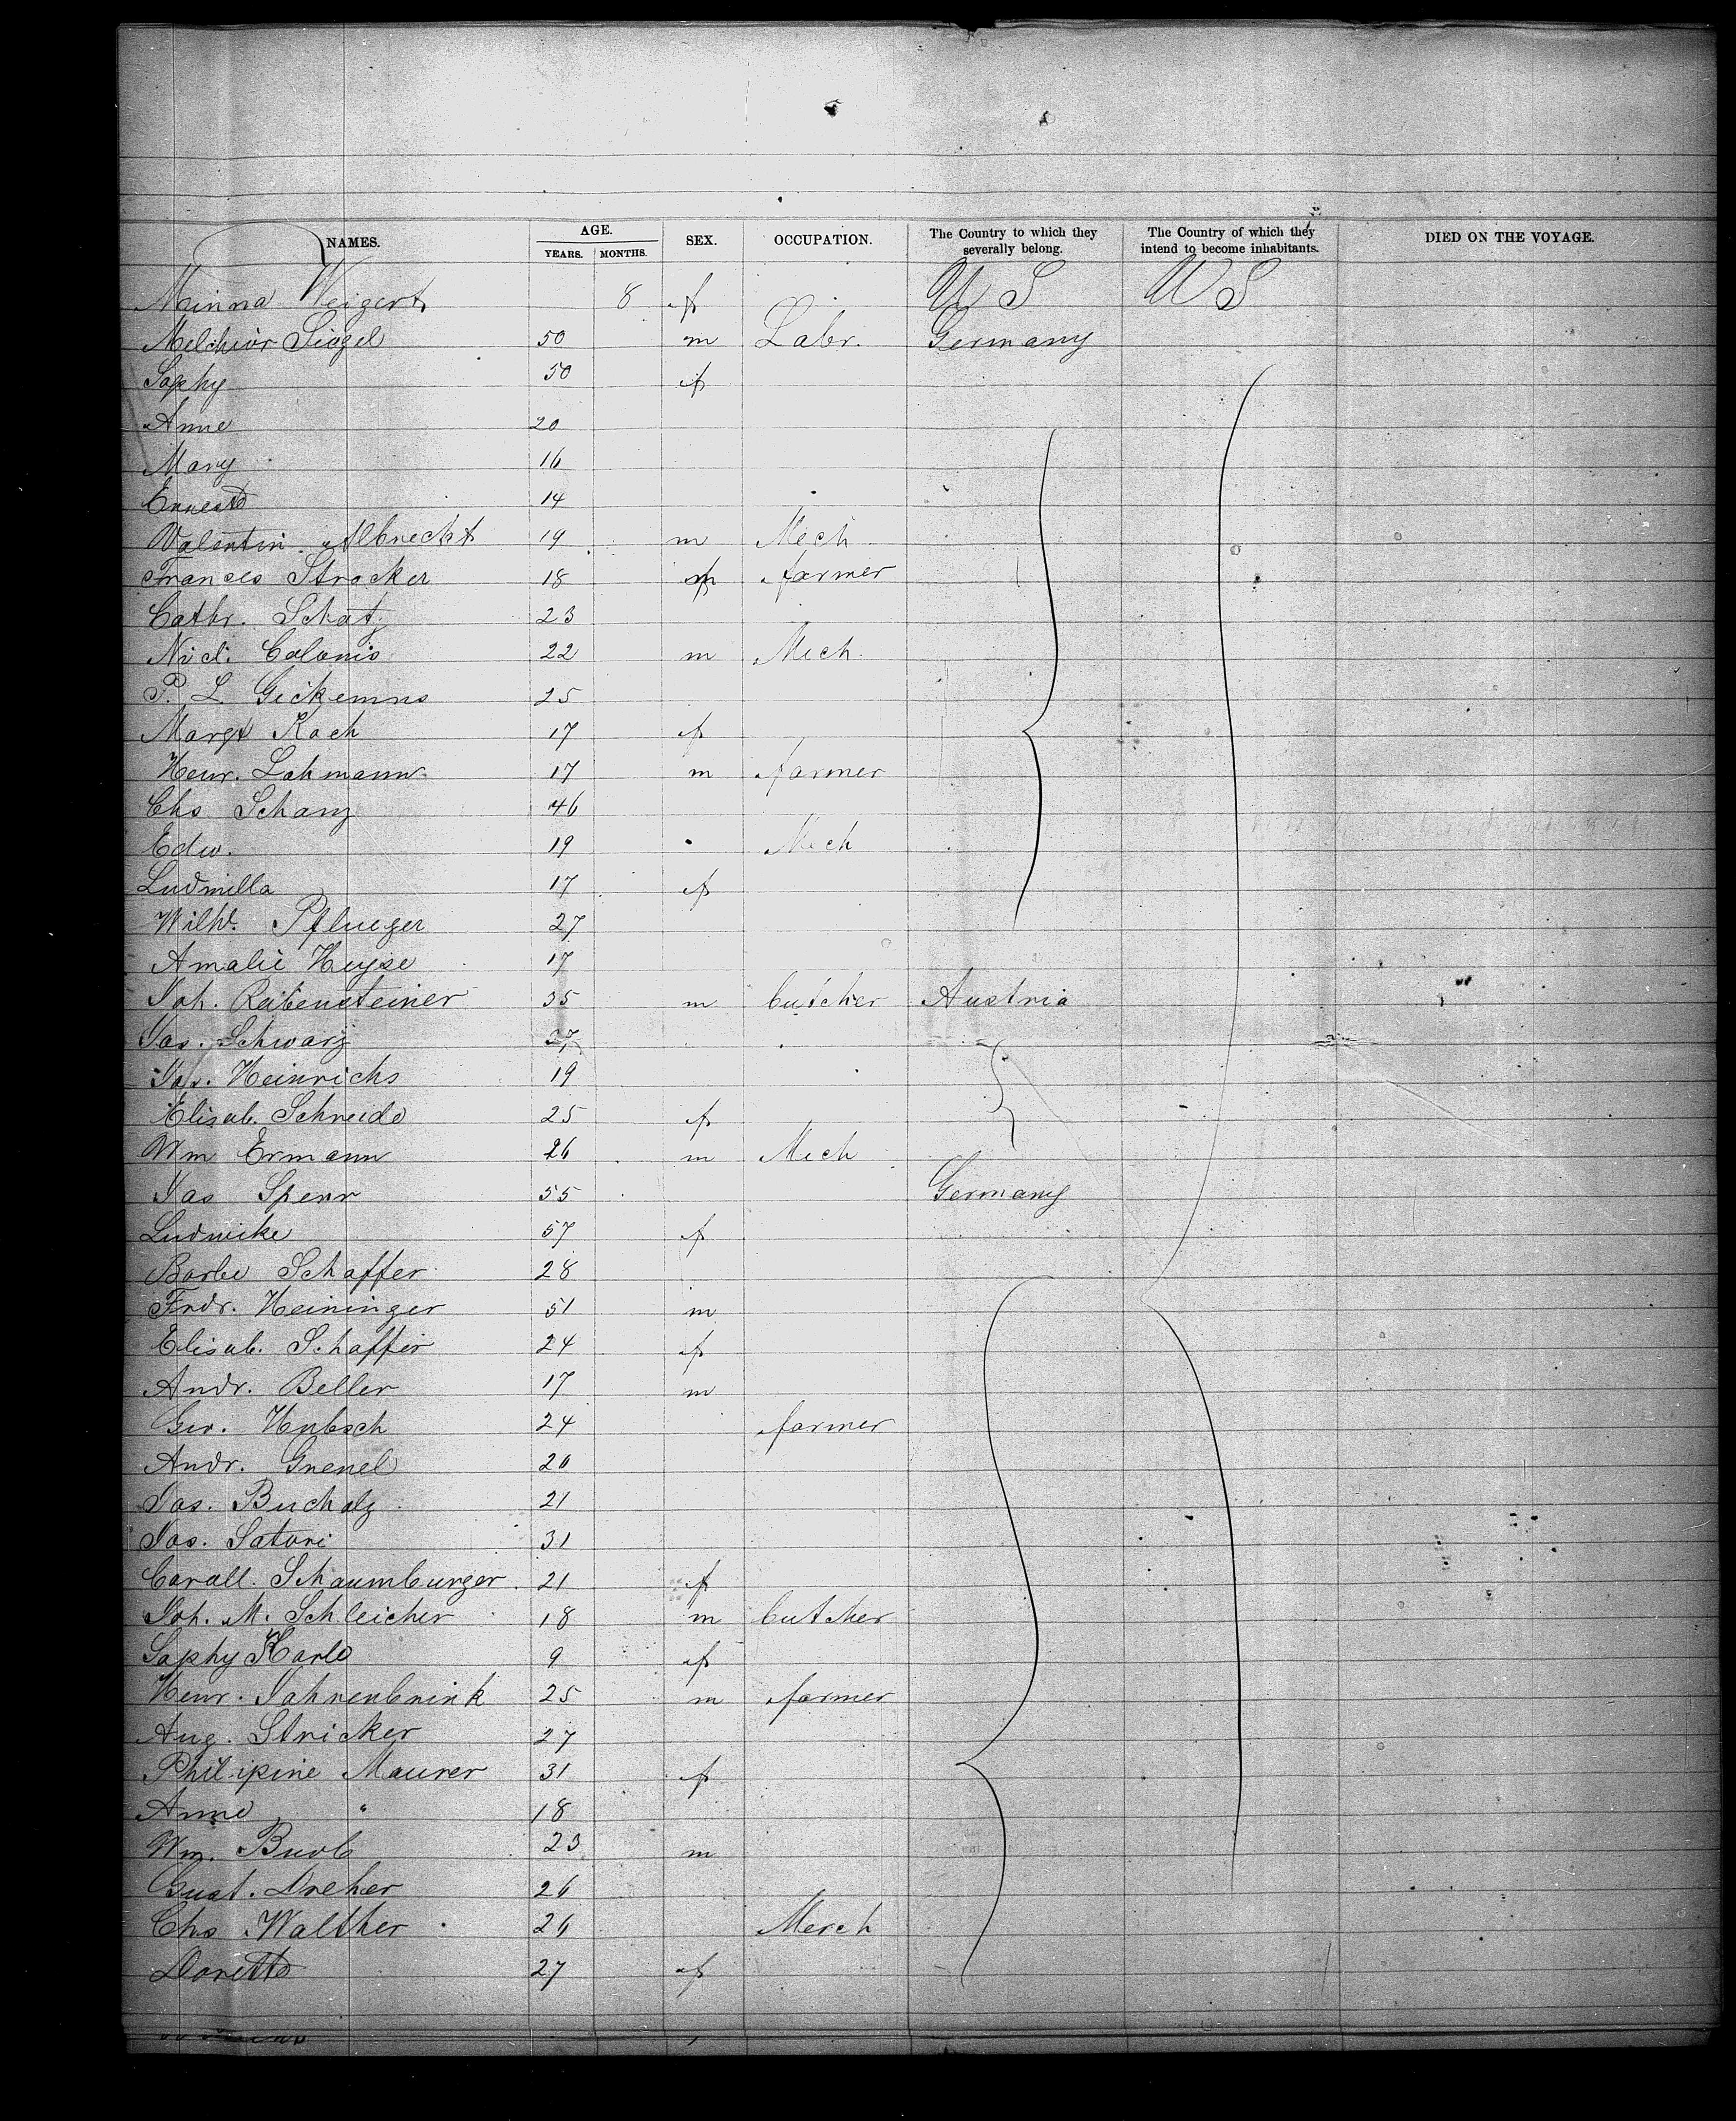 NAMES. AGE. SEX. OCCUPATION. The Country to which they severally belong. The Country of which they intend to become inhabitants. DIED ON THE VOYAGE.
YEARS. MONTHS.
Minna Weigert 8 f U S U S
Melchior Siegel 50 m Labr. Germany
Sophy 50 f
Anne 20
Mary 16
Ernest 14
Valentin Albrecht 19 m Mech
Frances Strocker 18 f farmer
Cathr. Schatz 23
Nicl. Colonis 22 m Mech.
P. L. Geikemns 25
Margt Koch 17 f
Henr. Lohmann 17 m farmer
Chs Schanz 46
Edw. 19 Mech
Ludmilla 17 f
Wilh. Pflueger 27
Amalie Heyse 17
Joh. Reibensteiner 35 m butcher Austria
Jos. Schwarz 27
Jos. Heinrichs 19
Elisab. Schneide 25 f
Wm Ermann 26 m Mech
Jas Spenr 55 Germany
Ludwike 57 f
Barbe Schaffer 28
Frdr. Heininger 51 m
Elisab. Schaffer 24 f
Andr. Beller 17 m
Geo. Hubsch 24 farmer
Andr. Grenel 20
Jos. Bucholz 21
Jos. Satori 31
Caroll. Schaumburger 21 f
Joh. M. Schleicher 18 m butcher
Sophy Karle 9 f
Henr. Fahrenbrink 25 m farmer
Aug. Stricker 27
Philipine Maurer 31 f
Anne " 18
Wm. Burb 23 m
Gust. Dreher 26
Chs Walther 26 Merch
Dorette 27 f